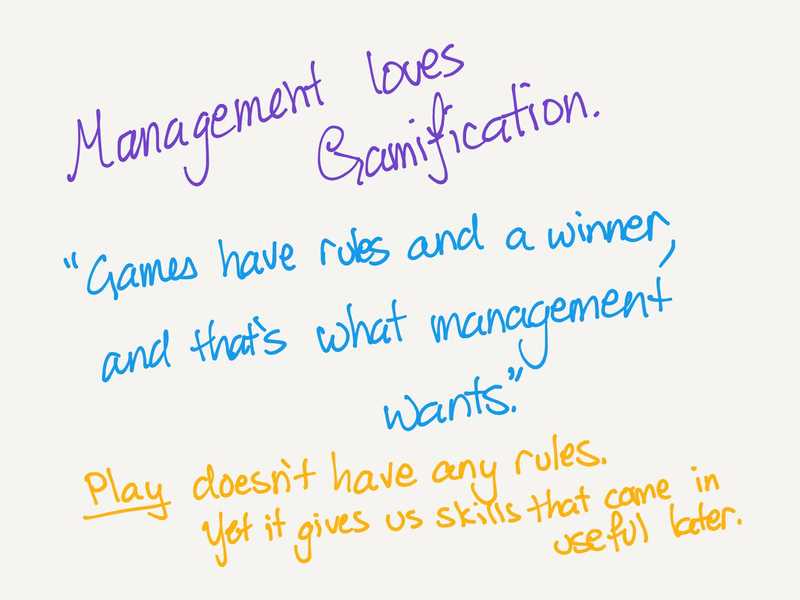 Management loves
Gamification.
"Games have rules and a winner,
and that's what management
wants."
Play doesn't have any rules.
Yet it gives us skills that come in
useful later.